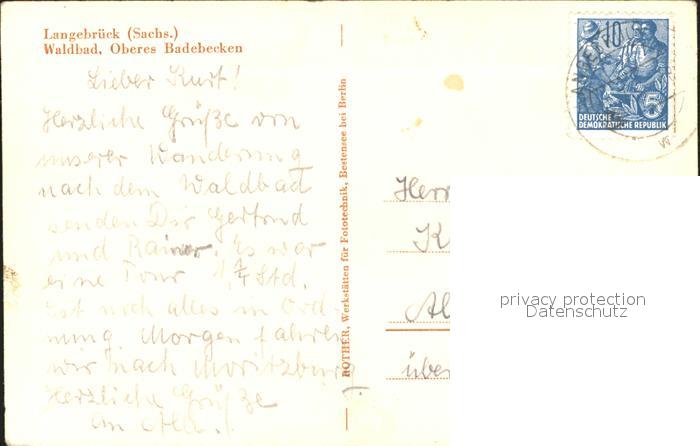 Langebrück (Sachs.)
Waldbad, Oberes Badebecken
Lieber Kurt!
Herzliche Grüße von
unserer Wanderung
nach dem Waldbad
senden Dir Gertrud
und Rainer. Es war
eine Tour 1 Std.
Ist noch alles in Ord-
nung. Morgen fahren
wir nach Moritzburg
Herzliche Grüße
an alle.
ROTHER, Werkstätten für Fototechnik, Bestensee bei Berlin
10
5
DEUTSCHE
DEMOKRATISCHE REPUBLIK
Herr
K
Al
über
privacy protection
Datenschutz